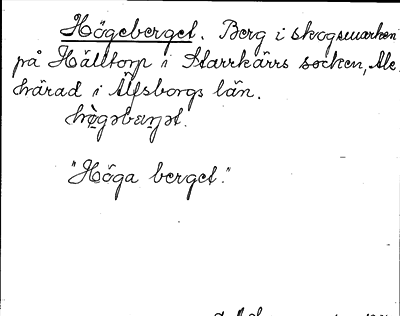 Högeberget. Berg i skogsmarken
på Hälltorp i Starrkärrs socken, Ale
härad i Älfsborgs län.
"Höga berget."